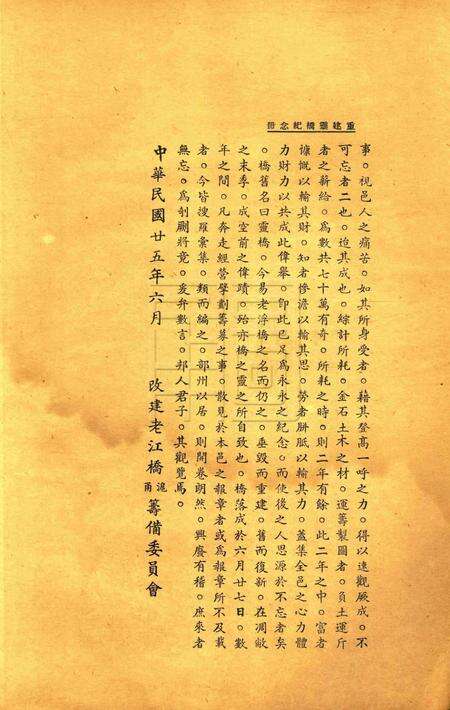 重建靈橋紀念冊
事。視邑人之痛苦。如其所身受者。藉其登高一呼之力。得以速觀厥成。不
可忘者二也。迨其成也。綜計所耗。金石土木之材。運籌製圖者。負土運斤
者之薪給。爲數共七十萬有奇。所耗之時。則二年有餘。此二年之中。富者
慷慨以輸其財。知者慘澹以輸其思。勞者胼胝以輸其力。蓋集全邑之心力體
力財力以共成此偉舉。卽此已足爲永永之紀念。而使後之人思源於不忘者矣
。橋舊名曰靈橋。今易老浮橋之名而仍之。垂毀而重建。舊而復新。在凋敝
之末季。成空前之偉蹟。殆亦橋之靈之所自致也。橋落成於六月廿七日。數
年之間。凡奔走經營擘劃籌募之事。散見於本邑之報章者或爲報章所不及載
者。今皆搜羅彙集。類而編之。部州以居。則開卷朗然。興廢有稽。庶來者
無忘。爲刳劂將竟。爰弁數言。邦人君子。其觀覽焉。
中華民國廿五年六月　改建老江橋甬滬籌備委員會